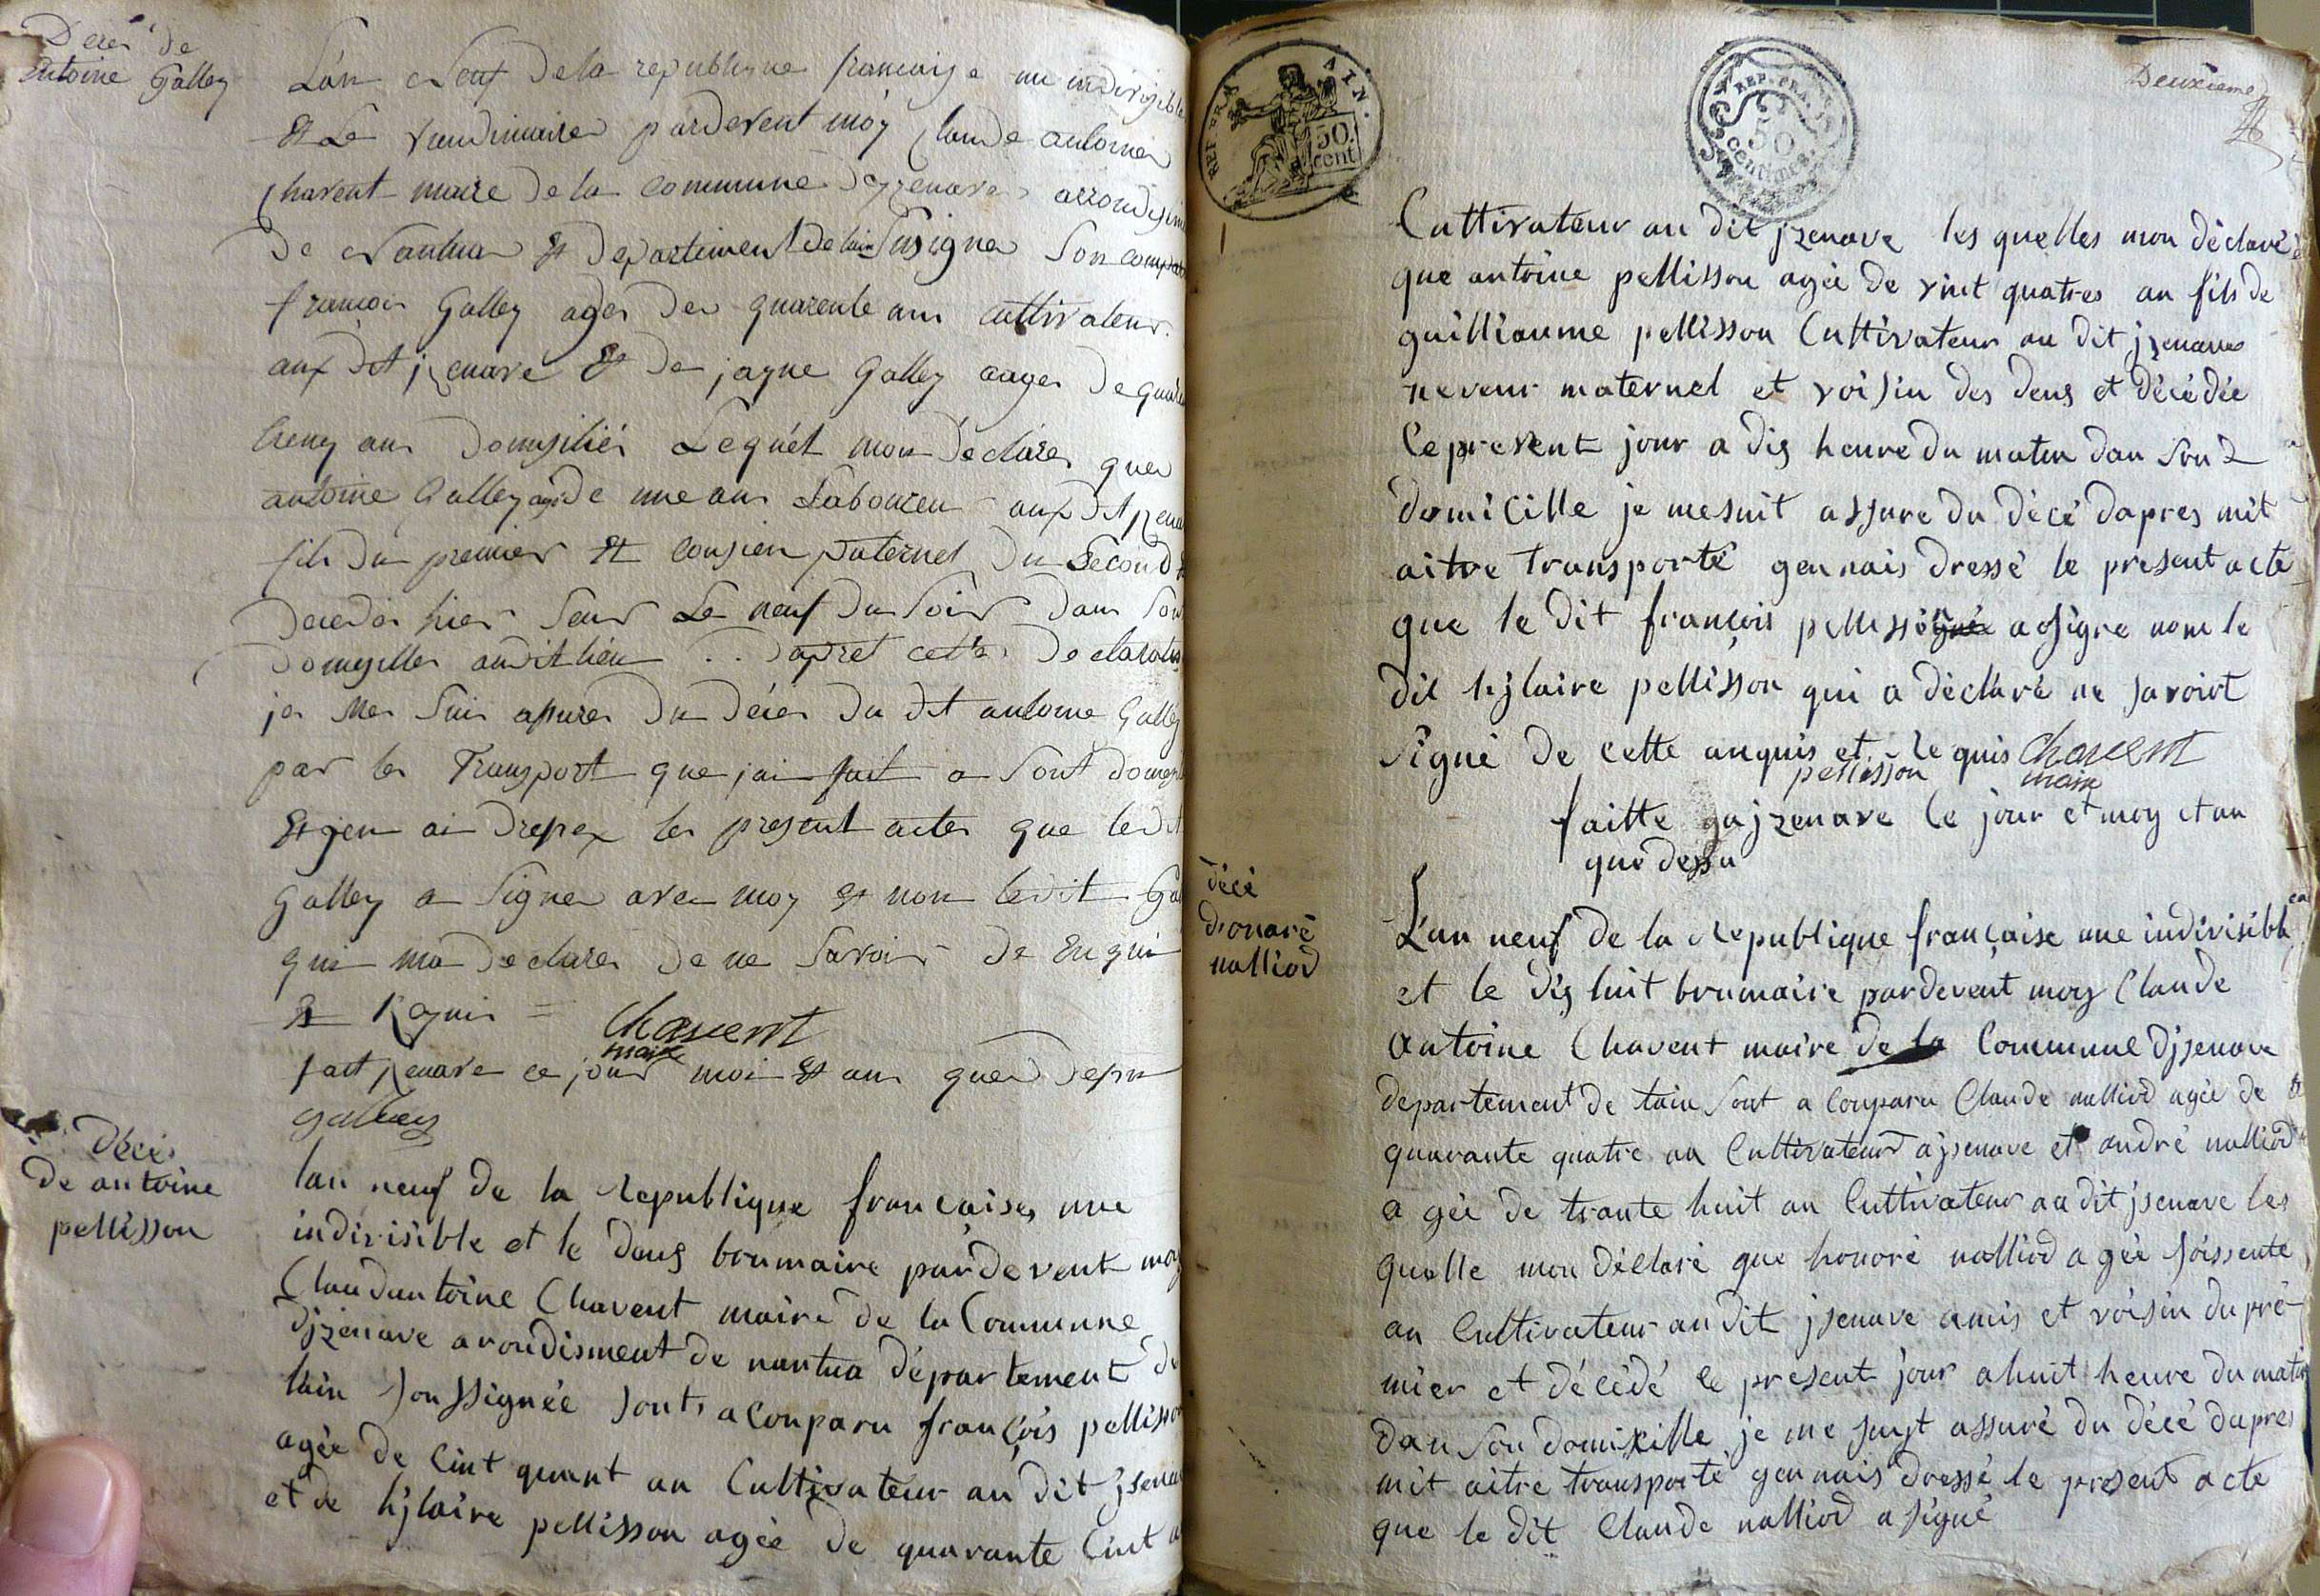 Décés de
antoine Galley
L'an Neuf de la republique francaise une indivisible
Et Le vendimaire pardevent moy Claude antoine
Chavent maire de la commune dyzenave arrondisim
de Nantua Et departiment de lain Susigner Son compar
francoir Galley ager der quarente ans cultivateur
aux dit jzenave Et de jaque Galley aager de quara
ans Domysilier Lequel mon déclarer quer
antoine Galley agé de une ans Laboureu aux dit jzena
fils du premier Et cousien paternel du Second
decedér hier Seur Le neuf du Soir dans Son
domysiller audit lieu .. dapret cetter declaration
jer mer Suis assurer du décer du dit antoine Galley
par ler Transport que jai fait a Sont domys
Et jen ai dresser ler present acter que ledit
Galley a Signer aver moy Et non ledit Gal
qui ma declarer de ne Savoir de Enqui
Et Requis = Chavent
maire
fait jzenave ce jour moi Et ans quer dessu
galley
Décés
de antoine
pellisson
lan neuf de la republique francaises une
indivisible et le dous brumaire pardevent moy
Claudantoine Chavent maire de la Commune
djzenave arondisment de nantua département de
lain soussignée sont acouparu françois pellisson
agée de cint quant an Cultivateur au dit jsenave
et de hjlaire pellisson agée de quarante cint a
REP. FRA. 50. cent ATN.
REP. FRA. 50 centimes
Deuxieme
Cultivateur au dit jzenave les quelles mon déclaré
que antoine pellisson agée de vint quatres an fils de
guilliaume pellisson Cultivateur au dit jzenave
neveur maternel et voisin des deus et décédée
le present jour a dis heure du matin dan son
domicille je mesuit assure du décé dapres mit
aitre transporté gennais dressé le present acte
que le dit françois pellisson a signe nom le
dit hjlaire pellisson qui a déclaré ne savoirt
signé de cette anquis et requis Chavent
pellisson maire
faitte a jzenave le jour et moy et an
que dessu
décé
donaré
nalliod
L'an neuf de la republique française une indivisible
et le dis huit brumaire pardevent moy Claude
antoine Chavent maire de la Commune djsenave
departement de lain sont a couparu Claude nalliod agée de
quarante quatre an Cultivateur a jsenave et andré nalliod
a gée de trante huit an Cultivateur au dit jsenave les
quelle mon déclaré que honoré nalliod a gée soissente
an Cultivateur au dit jsenave amis et voisin du pre-
mier et décédé le present jour a huit heure du matin
dan son domicille je me suyt assuré du décé dapres
mit aitre transporté gennais dressé le present acte
que le dit Claude nalliod a signé